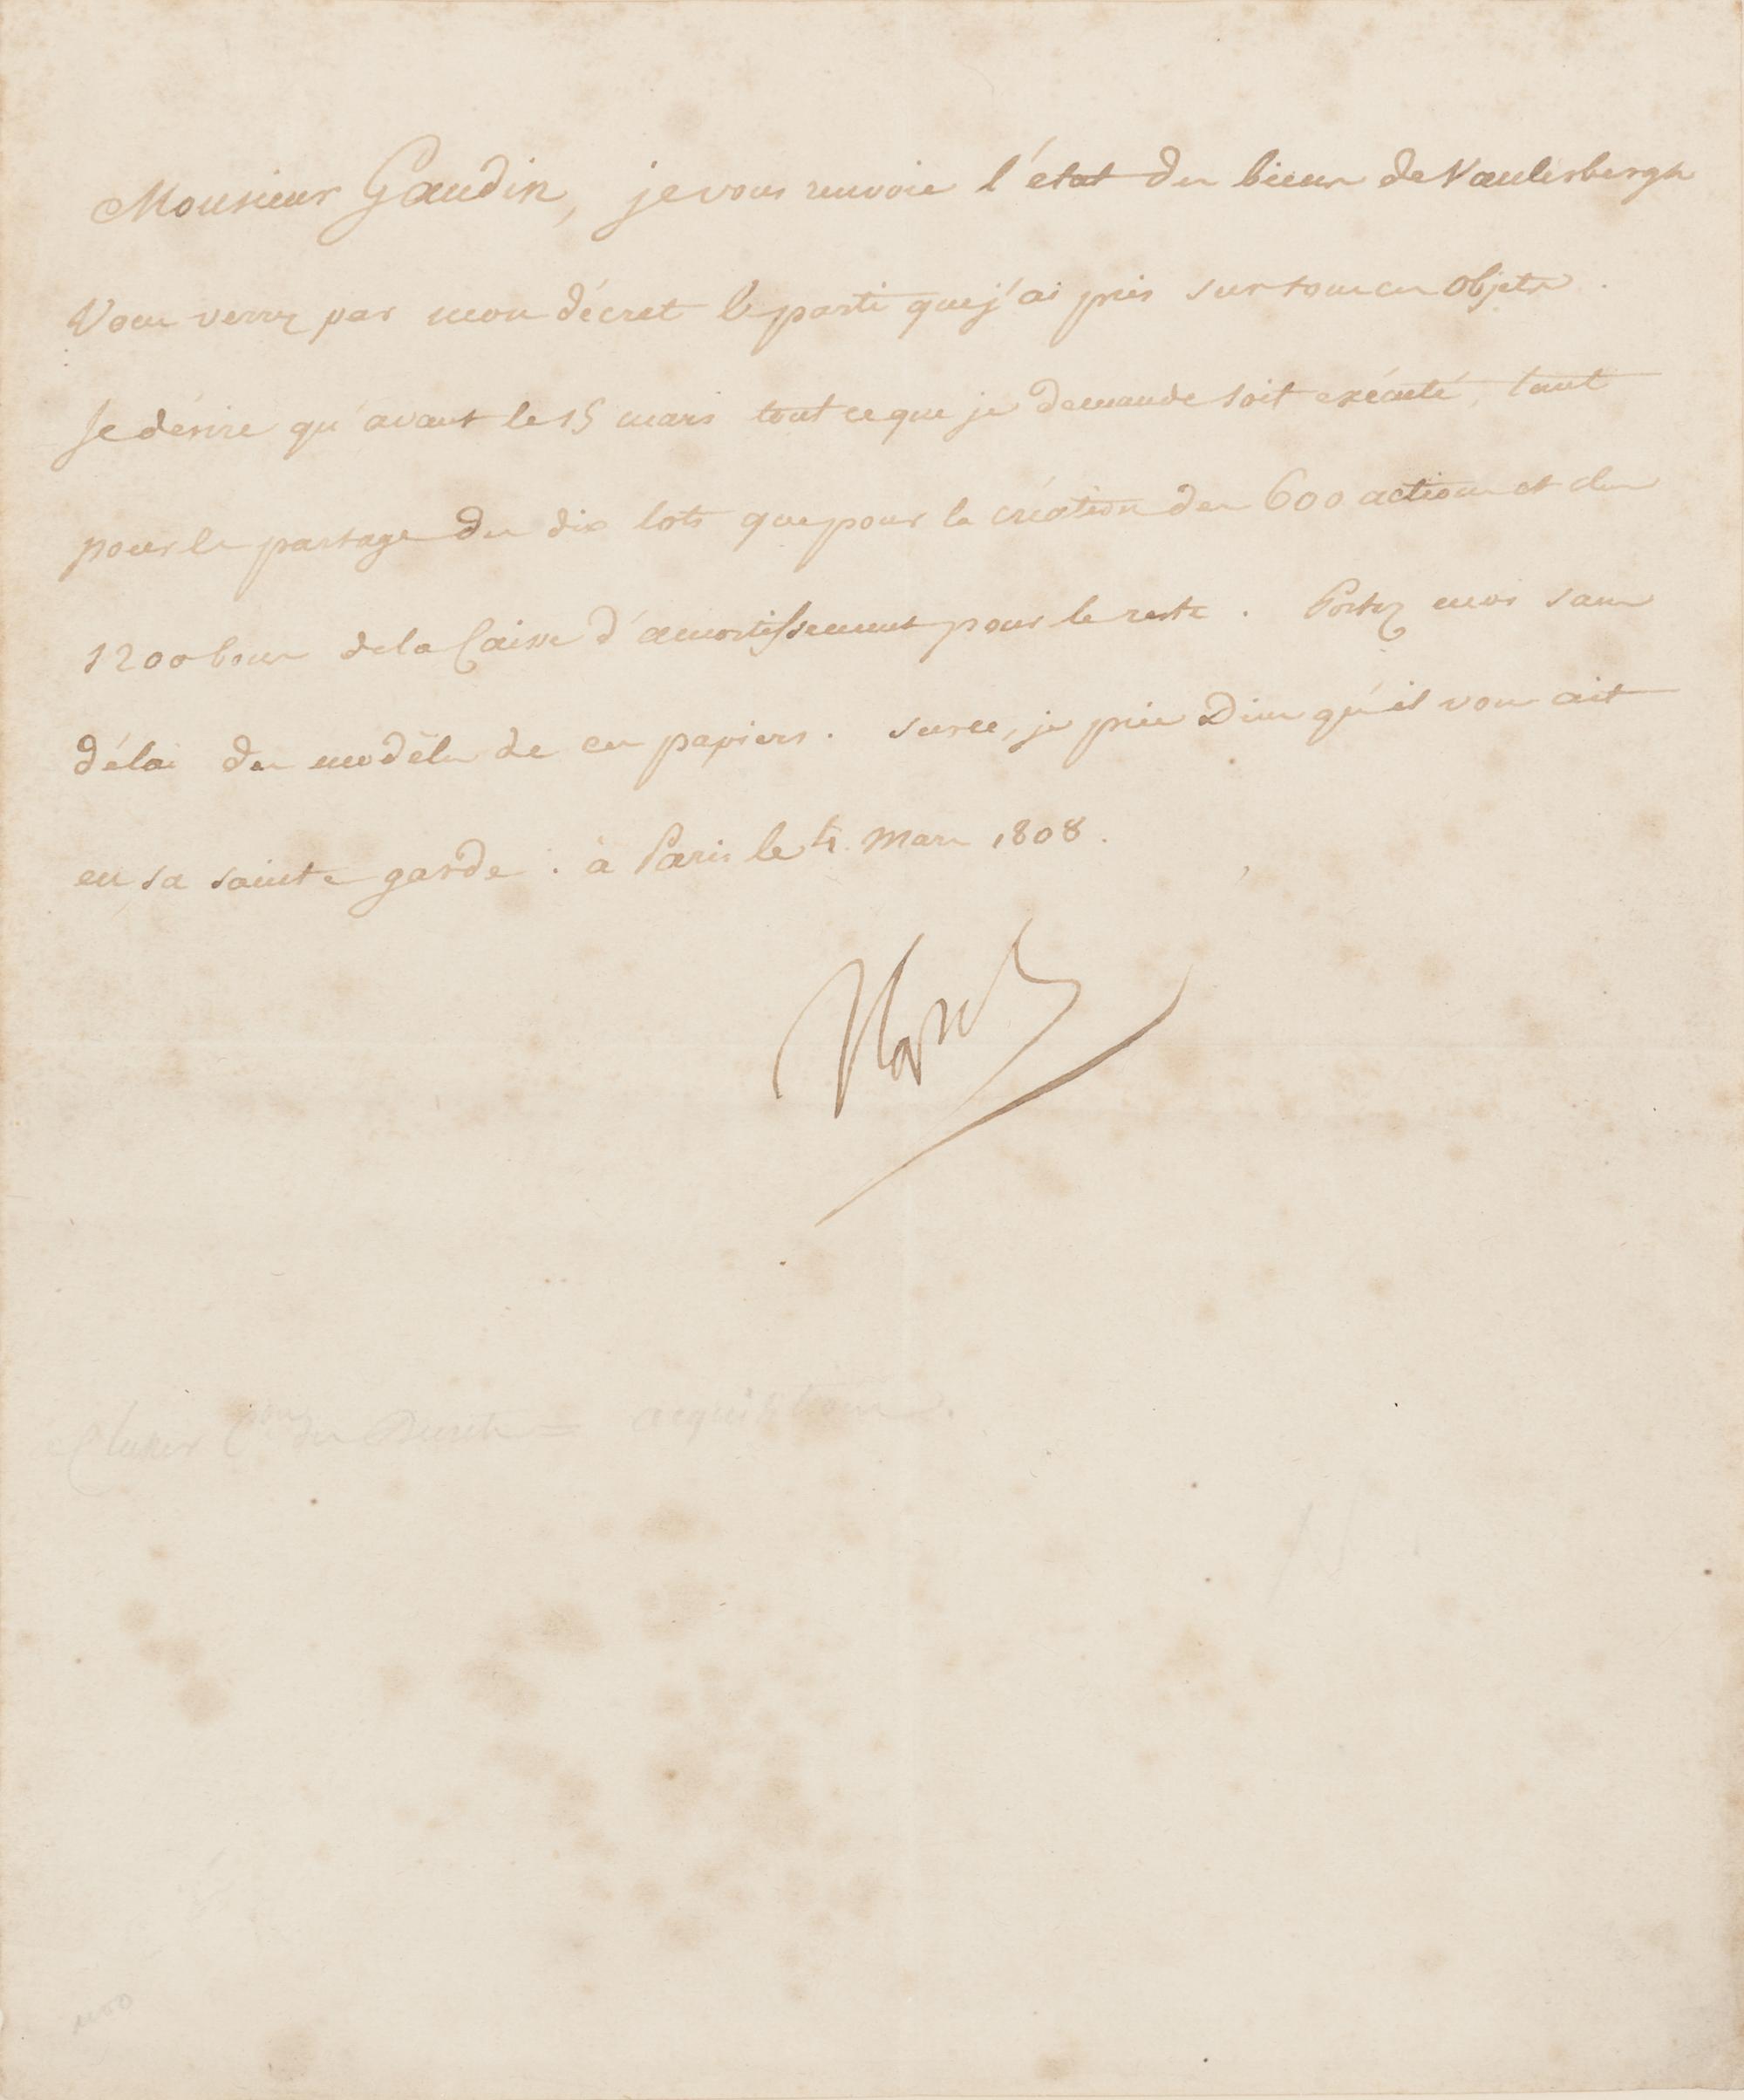 Monsieur Gaudin, je vous renvoie l'état des biens de Vanlerberghe
Vous verrez par mon décret le parti que j'ai pris sur tous ces objets.
Je désire qu'avant le 15 mars tout ce que je demande soit exécuté, tant
pour le partage des dix lots que pour la création des 600 actions et des
1200 bons de la Caisse d'amortissement pour le reste. Portez moi sans
délai des modèles de ces papiers. Sur ce, je prie Dieu qu'il vous ait
en sa sainte garde. à Paris le 4. Mars 1808.
Nap
acquisitions.